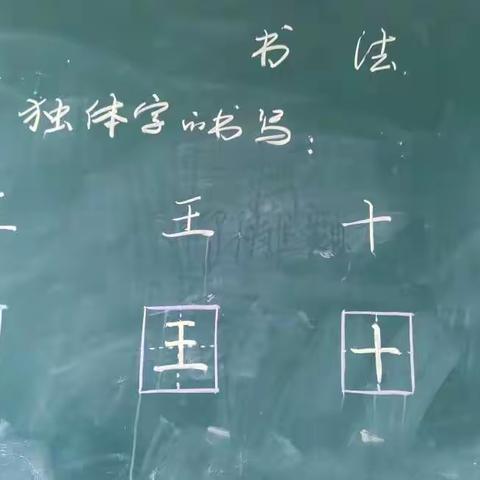 书 法
独体字的书写：
王 十
王 十